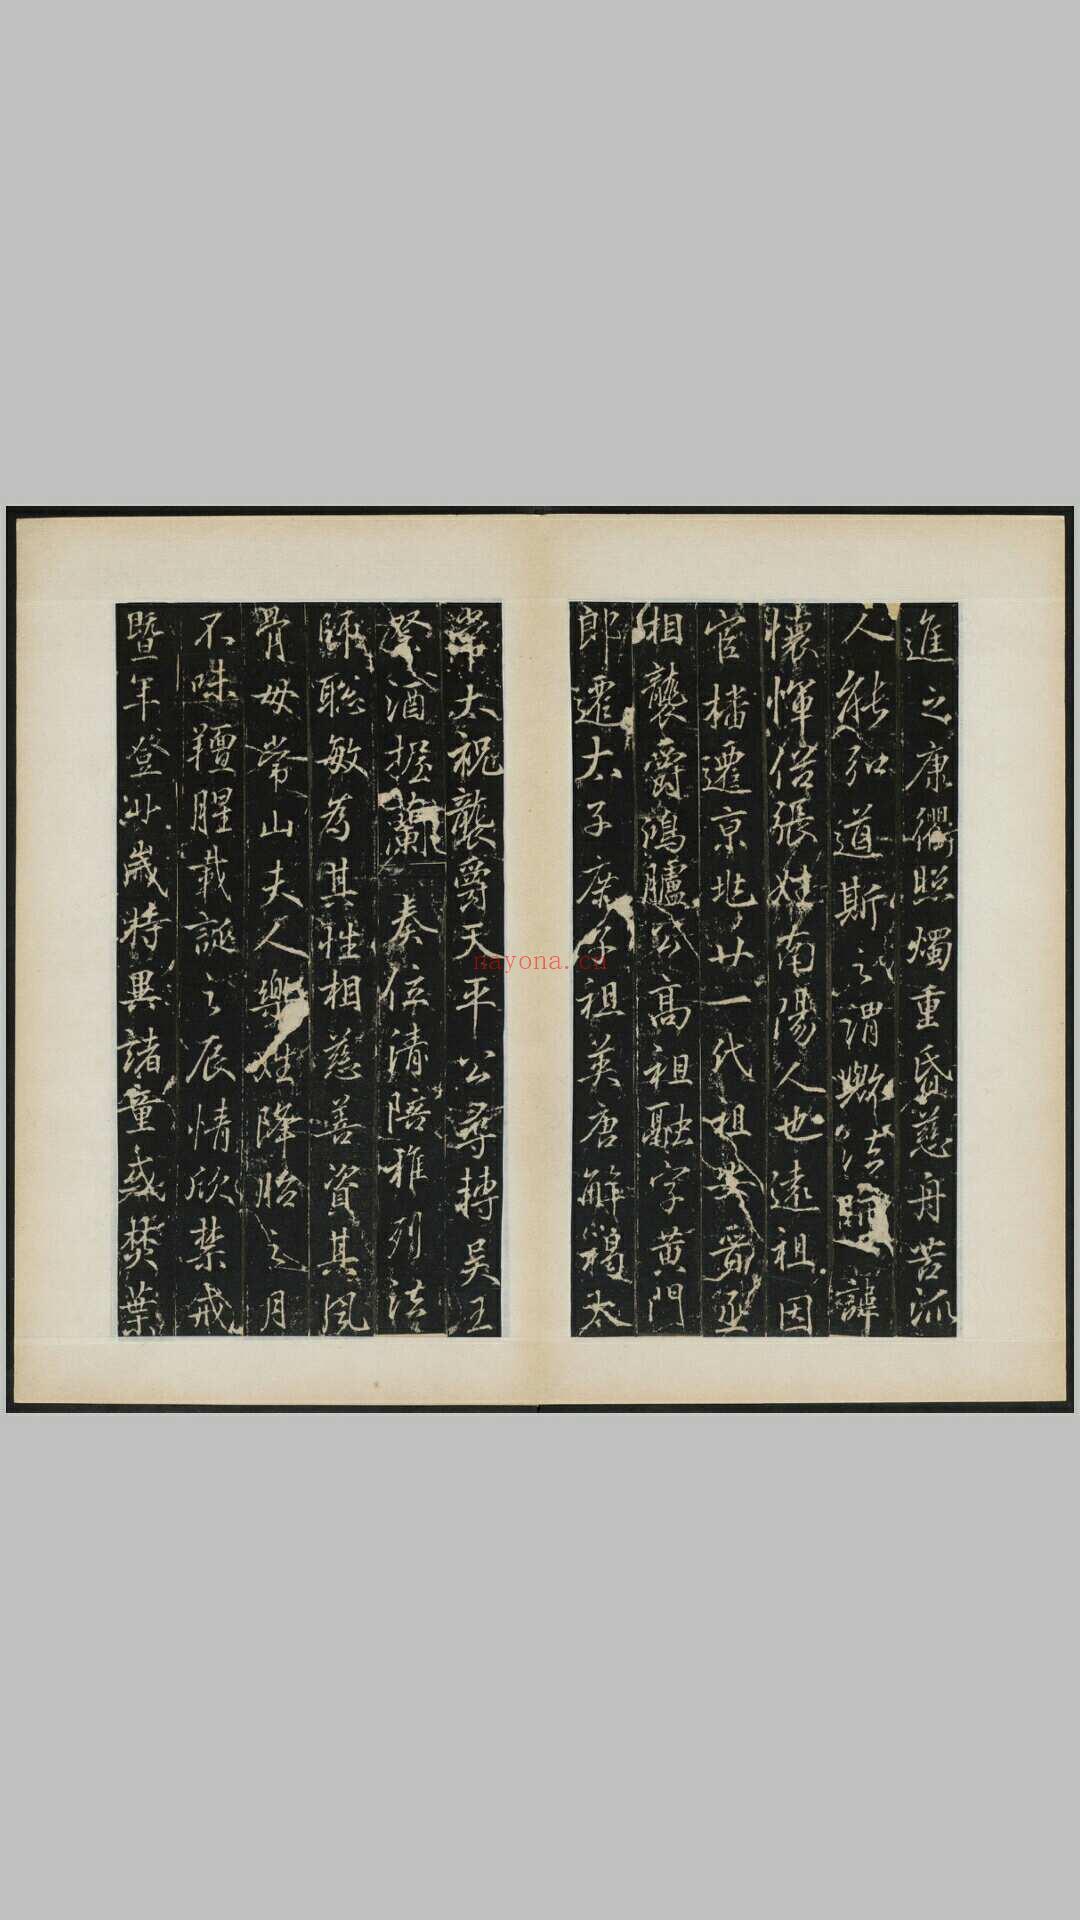 進之康衢照燭重昏慈舟苦流
人能弘道斯之謂歟法師諱
懷惲俗張姓南陽人也遠祖因
官播遷京兆廿一代祖安晉丞
相襲爵鴻臚公高祖融字黃門
郎遷太子庶子祖英唐解褐太
常太祝襲爵天平公尋轉吳王
祭酒握蘭奏位清陪雅列法
師聰敏為其性相慈善資其風
骨母常山夫人樂姓降胎之月
不味羶腥載誕之辰情欣禁戒
暨年登卅歲特異諸童或焚葉
nayona.cn